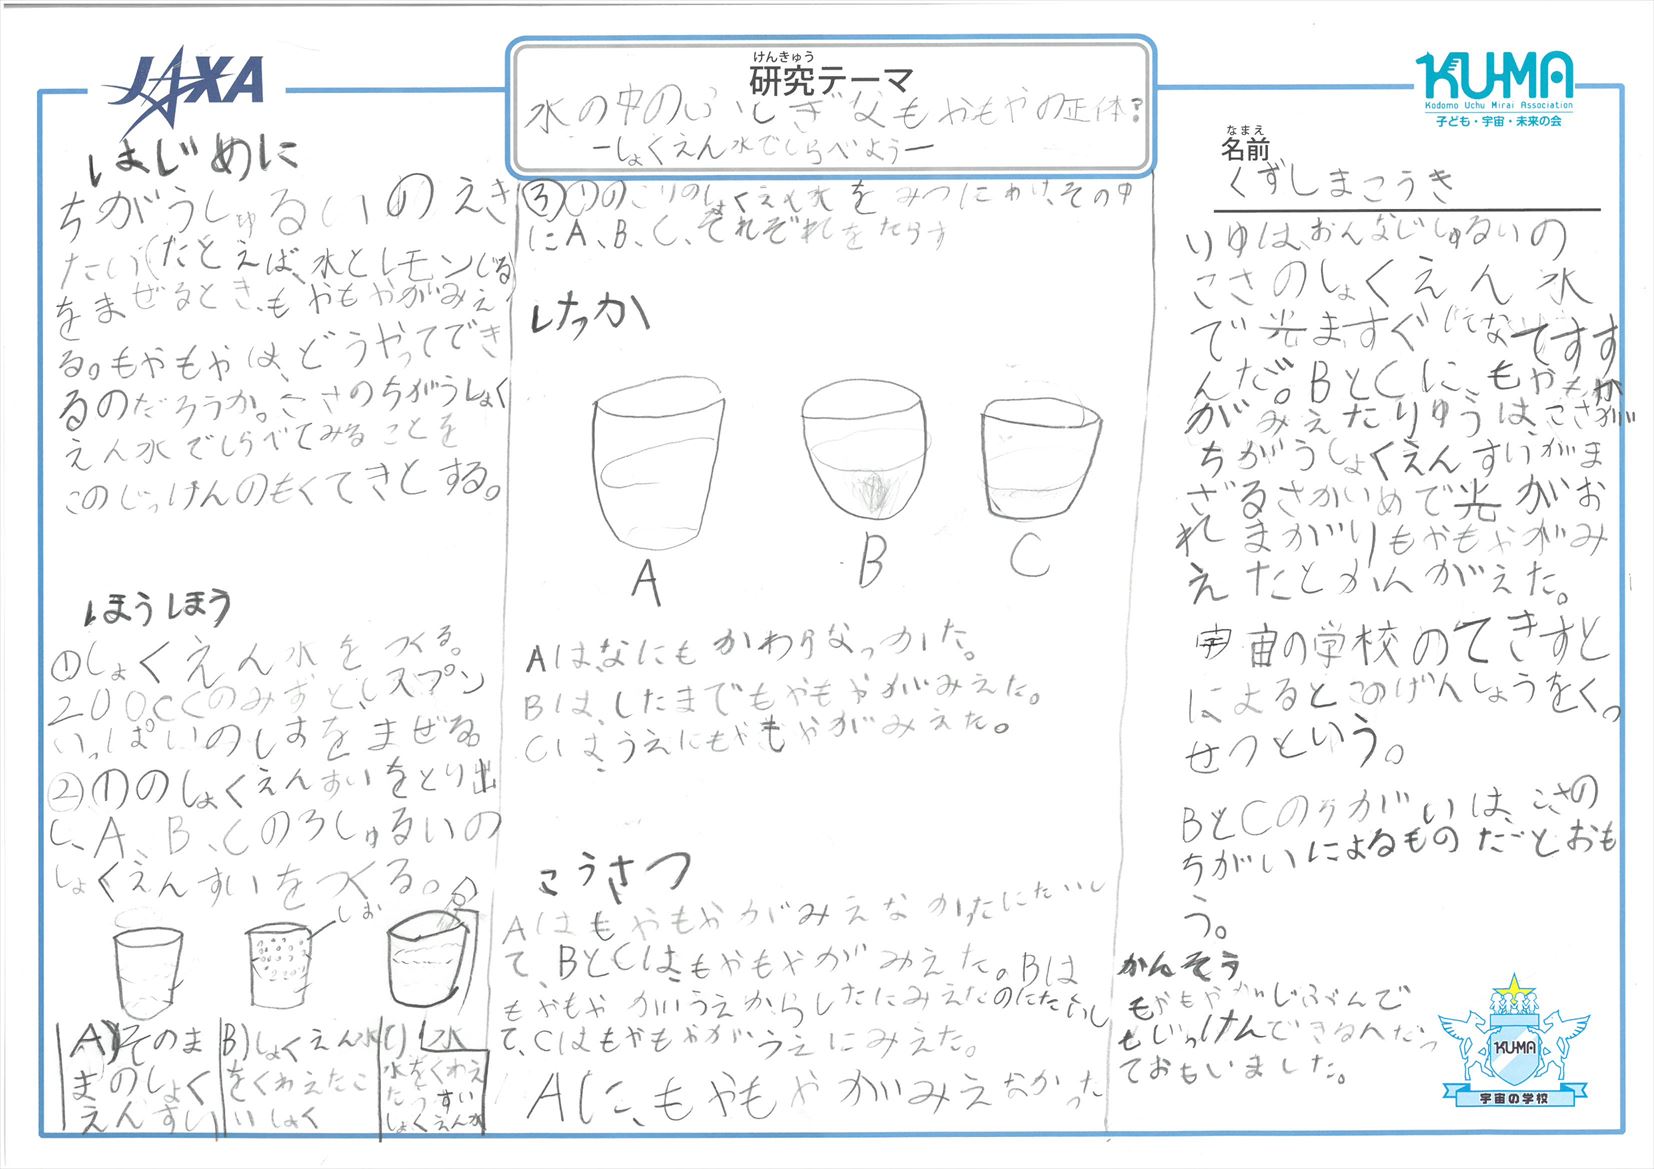 JAXA
けんきゅう
研究テーマ
水の中のふしぎなもやもやの正体?
ーしょくえん水でしらべようー
KUMA
Kodomo Uchu Mirai Association
子ども・宇宙・未来の会
なまえ
名前
くずしまこうき
はじめに
ちがうしゅるいのえき
たい(たとえば、水とレモンじる
をまぜるとき、もやもやがみえ
る。もやもやは、どうやってでき
るのだろうか。こさのちがうしょく
えん水でしらべてみることを
このじっけんのもくてきとする。
ほうほう
①しょくえん水をつくる。
200ccのみずと、しスプン
いっぱいのしおをまぜる。
②①のしょくえんすいをとり出
し、A、B、Cの3しゅるいの
しょくえんすいをつくる。
しお
A)そのま
まのしょく
えんすい
B)しょくえん水
をくわえたこ
いしょく
C)水
水をくわえ
たうすい
しょくえん水
③①のこりのしょくえん水をみつにわけ、その中
にA、B、C、それぞれをたらす
けっか
A
B
C
Aは、なにもかわりなっかた。
Bは、したまでもやもやがみえた。
Cは、うえにもやもやがみえた。
こうさつ
Aはもやもやがみえなかったにたいし
て、BとCは、もやもやがみえた。Bは
もやもやがうえからしたにみえたのにたいし
て、Cはもやもやがうえにみえた。
Aに、もやもやがみえなかった
りゆは、おんなじしゅるいの
こさのしょくえん水
で光ますぐ
んだ。BとCに、もやもや
がみえたりゆうは、こさが
ちがうしょくえんすいがま
ざるさかいめで光がお
れまがりもやもやがみ
えたとかんがえた。
宇宙の学校のてきすと
によるとこのげんしょうをくっ
せつという。
BとCのちがいは、こさの
ちがいによるものだとおも
う。
かんそう
もやもやがじぶんで
もじっけんできるんだっ
ておもいました。
KUMA
宇宙の学校